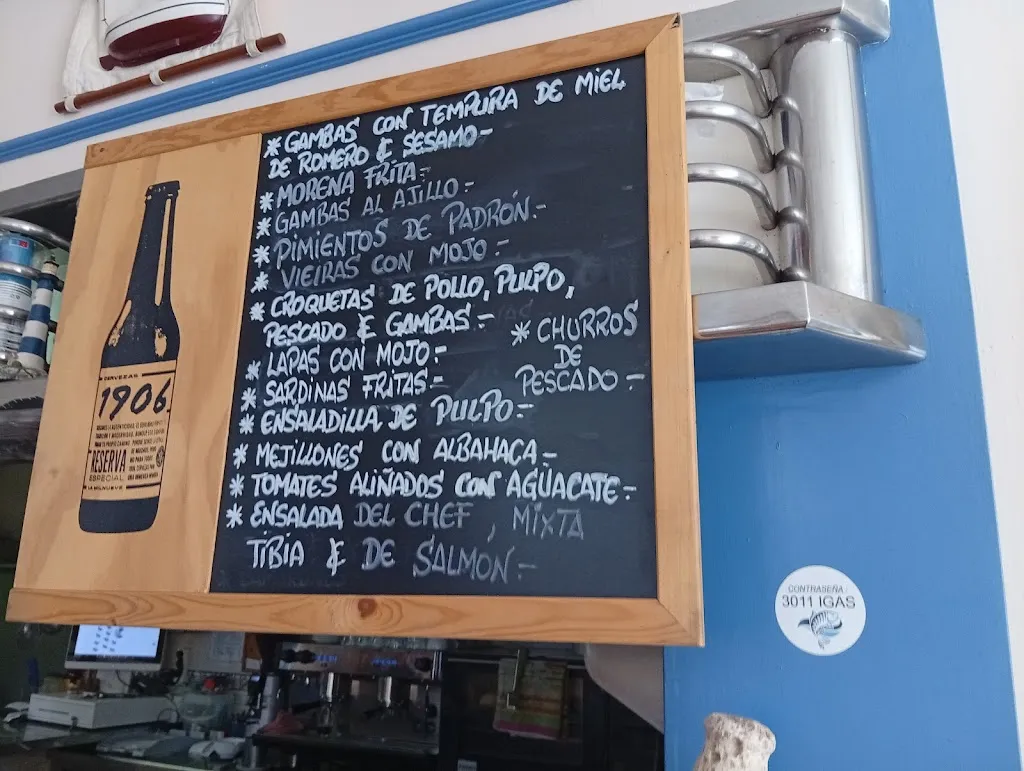 * GAMBAS CON TEMPURA DE MIEL
DE ROMERO & SESAMO-
* MORENA FRITA-
* GAMBAS AL AJILLO-
* PIMIENTOS DE PADRÓN.-
* VIEIRAS CON MOJO-
* CROQUETAS DE POLLO, PULPO,
PESCADO & GAMBAS-
* LAPAS CON MOJO-
* SARDINAS FRITAS-
* CHURROS
DE
PESCADO-
* ENSALADILLA DE PULPO-
* MEJILLONES CON ALBAHACA-
* TOMATES ALIÑADOS CON AGUACATE-
* ENSALADA DEL CHEF, MIXTA
TIBIA & DE SALMON.-
CERVEZAS
1906
RESERVA
ESPECIAL
CONTRASEÑA:
3011 IGAS